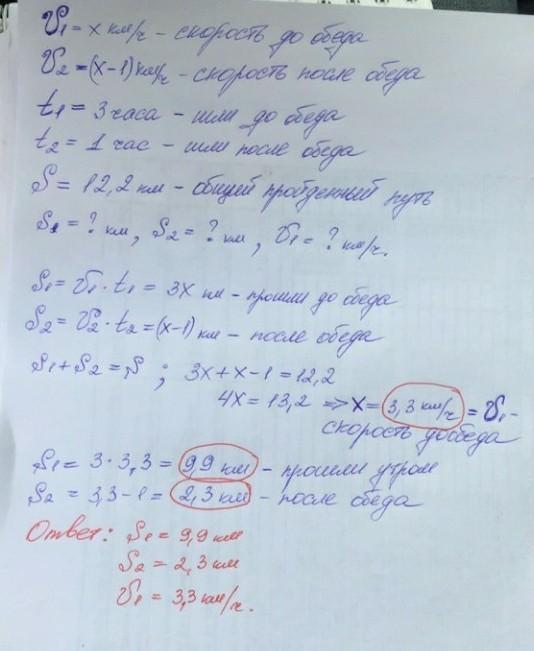 V₁ = x км/ч - скорость до обеда
V₂ = (x-1) км/ч - скорость после обеда
t₁ = 3 часа - шли до обеда
t₂ = 1 час - шли после обеда
S = 12,2 км - общий пройденный путь
S₁ = ? км, S₂ = ? км, V₁ = ? км/ч.
S₁ = V₁ · t₁ = 3x км - прошли до обеда
S₂ = V₂ · t₂ = (x-1) км - после обеда
S₁ + S₂ = S ; 3x + x - 1 = 12,2
4x = 13,2 => x = 3,3 км/ч = V₁ -
скорость до обеда
S₁ = 3 · 3,3 = 9,9 км - прошли утром
S₂ = 3,3 - 1 = 2,3 км - после обеда
Ответ: S₁ = 9,9 км
S₂ = 2,3 км
V₁ = 3,3 км/ч.